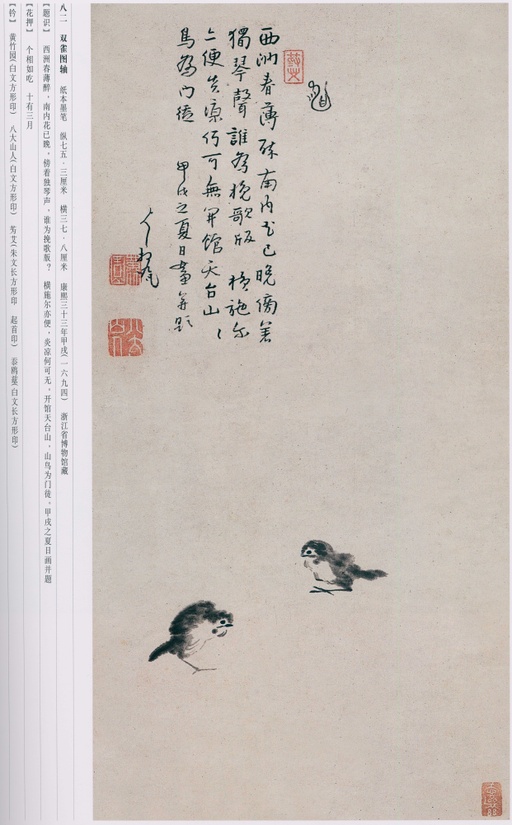 西洲春薄醉南内花已晚傍著
獨琴聲誰為挽歌版 橫施尔
亦便炎凉何可無開館天台山〻
鳥為門徒 甲戌之夏日畫并題
八大山人
八二 双雀图轴 纸本墨笔 纵七五·三厘米 横三七·八厘米 康熙三十三年甲戌(一六九四) 浙江省博物馆藏
【题识】 西洲春薄醉，南内花已晚，傍着独琴声，谁为挽歌版？ 横施尔亦便，炎凉何可无，开馆天台山，山鸟为门徒。甲戌之夏日画并题
【花押】 个相如吃 十有三月
【钤】 黄竹园(白文方形印) 八大山人(白文方形印) 艾(朱文长方形印 起首印) (白文长方形印)